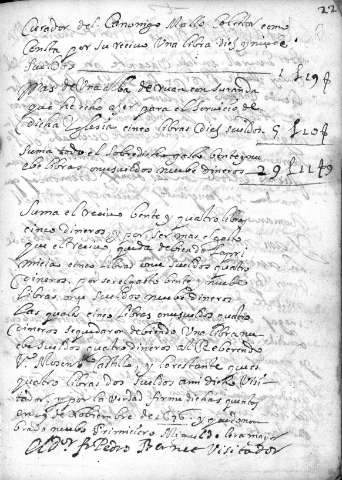 22
Curador del Canonigo Mallo Cobrar como
Consta por su recivo Una libra dies i nuebe
Sueldos 1 £ 19 s
Mas de Una Alba de ruan con su randa
que ha echo aser para el servicio de
dicha Iglesia cinco libras dies sueldos 5 £ 10 s
Suma todo el sobredicho gasto bente y nu
ebe libras onse sueldos nuebe dineros 29 £ 11 s 9
Suma el recivo bente y quatro libras
cinco dineros y por ser mas el gasto
que el recivo queda debiendo la pri
micia cinco libras onse sueldos quatro
dineros, por ser el gasto bente y nuebe
libras onse sueldos nuebe dineros
Las quales cinco libras onse sueldos quatro
dineros se quedaron debiendo Una libra nu
ebe sueldos quatro dineros al Reberendo
Vº Mosen Castillo, y lo restante que es
quatro libras dos sueldos a mi dicho Visi
tador, y por la verdad firme dichas quentas
en de Nobiembre de 1696 y quedo nom
brado nuebo Primiciero Miguel de
El Dor fr Pedro Bernet Visitador